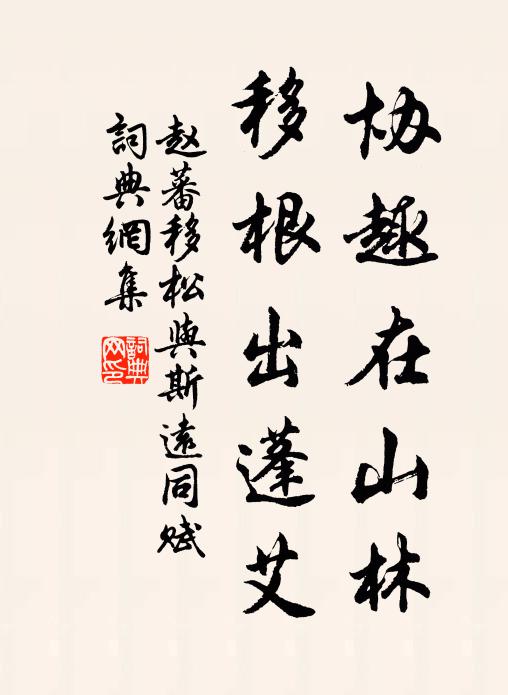 协趣在山林
移根出蓬艾
赵蕃移松與斯遠同赋
詞典網集
詞典网印